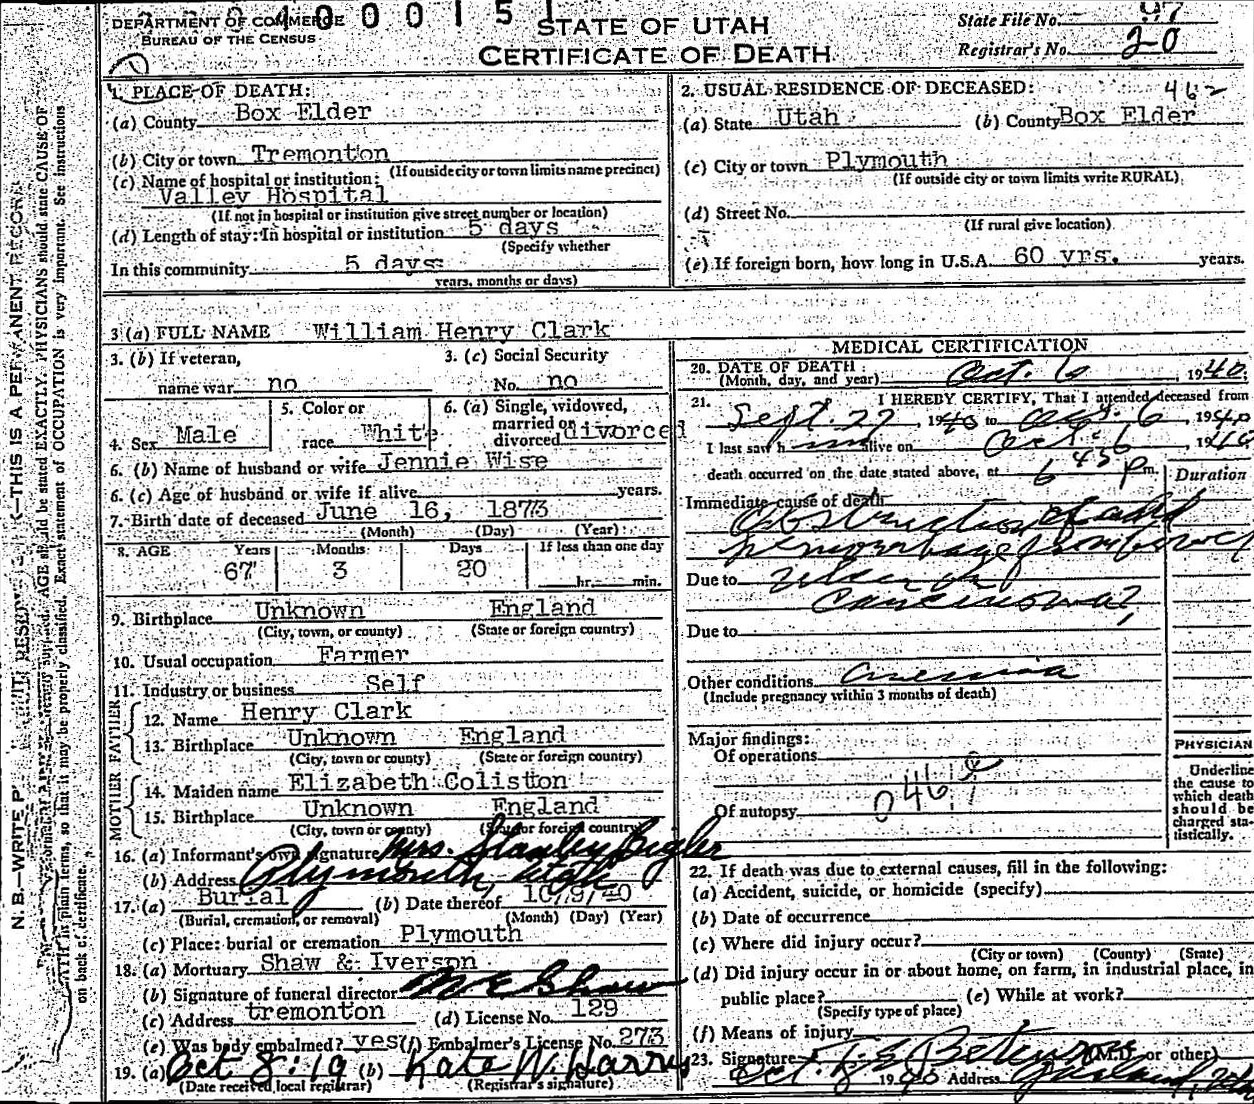 DEPARTMENT OF COMMERCE
BUREAU OF THE CENSUS
400151
STATE OF UTAH
CERTIFICATE OF DEATH
State File No. 97
Registrar's No. 20
1. PLACE OF DEATH:
(a) County Box Elder
(b) City or town Tremonton
(If outside city or town limits name precinct)
(c) Name of hospital or institution:
Valley Hospital
(If not in hospital or institution give street number or location)
(d) Length of stay: In hospital or institution 5 days
(Specify whether
In this community 5 days
years, months or days)
2. USUAL RESIDENCE OF DECEASED: 462
(a) State Utah (b) County Box Elder
(c) City or town Plymouth
(If outside city or town limits write RURAL)
(d) Street No.
(If rural give location)
(e) If foreign born, how long in U.S.A. 60 yrs. years.
3 (a) FULL NAME William Henry Clark
3. (b) If veteran,
name war no
3. (c) Social Security
No. no
4. Sex Male
5. Color or
race White
6. (a) Single, widowed,
married or
divorced divorced
6. (b) Name of husband or wife Jennie Wise
6. (c) Age of husband or wife if alive years.
7. Birth date of deceased June 16, 1873
(Month) (Day) (Year)
8. AGE Years Months Days If less than one day
67 3 20 hr. min.
9. Birthplace Unknown England
(City, town, or county) (State or foreign country)
10. Usual occupation Farmer
11. Industry or business Self
FATHER
12. Name Henry Clark
13. Birthplace Unknown England
(City, town, or county) (State or foreign country)
MOTHER
14. Maiden name Elizabeth Colistion
15. Birthplace Unknown England
(City, town or county) (State or foreign country)
16. (a) Informant's own signature Mrs. Stanley Bigler
(b) Address Plymouth, Utah
17. (a) Burial (b) Date thereof 10/9/40
(Burial, cremation, or removal) (Month) (Day) (Year)
(c) Place: burial or cremation Plymouth
18. (a) Mortuary Shaw & Iverson
(b) Signature of funeral director M E Shaw
(c) Address tremonton (d) License No. 129
(e) Was body embalmed? yes (f) Embalmer's License No. 273
19. (a) Oct 8:19 (b) Kate W. Harris
(Date received local registrar) (Registrar's signature)
MEDICAL CERTIFICATION
20. DATE OF DEATH
(Month, day, and year) Oct. 6, 1940.
21. I HEREBY CERTIFY, That I attended deceased from
Sept. 27, 1940 to Oct. 6, 1940
I last saw him alive on Oct. 6 1940
death occurred on the date stated above, at 6 45 P m. Duration
Immediate cause of death
Obstruction of and
hemorrhage from bowel
Due to Ulcer or
Carcinoma?
Due to
Other conditions Anemia
(Include pregnancy within 3 months of death)
Major findings:
Of operations
Of autopsy 046
PHYSICIAN
Underline
the cause to
which death
should be
charged sta-
tistically.
22. If death was due to external causes, fill in the following:
(a) Accident, suicide, or homicide (specify)
(b) Date of occurrence
(c) Where did injury occur?
(City or town) (County) (State)
(d) Did injury occur in or about home, on farm, in industrial place, in
public place? (e) While at work?
(Specify type of place)
(f) Means of injury
23. Signature (M.D. or other)
Oct. 8 1940 Address Garland, Utah
K—THIS IS A PERMANENT RECORD
N. B.—WRITE P
AGE should be stated EXACTLY. PHYSICIANS should state CAUSE OF
ATH in plain terms, so that it may be properly classified. Exact statement of OCCUPATION is very important. See instructions
on back of certificate.